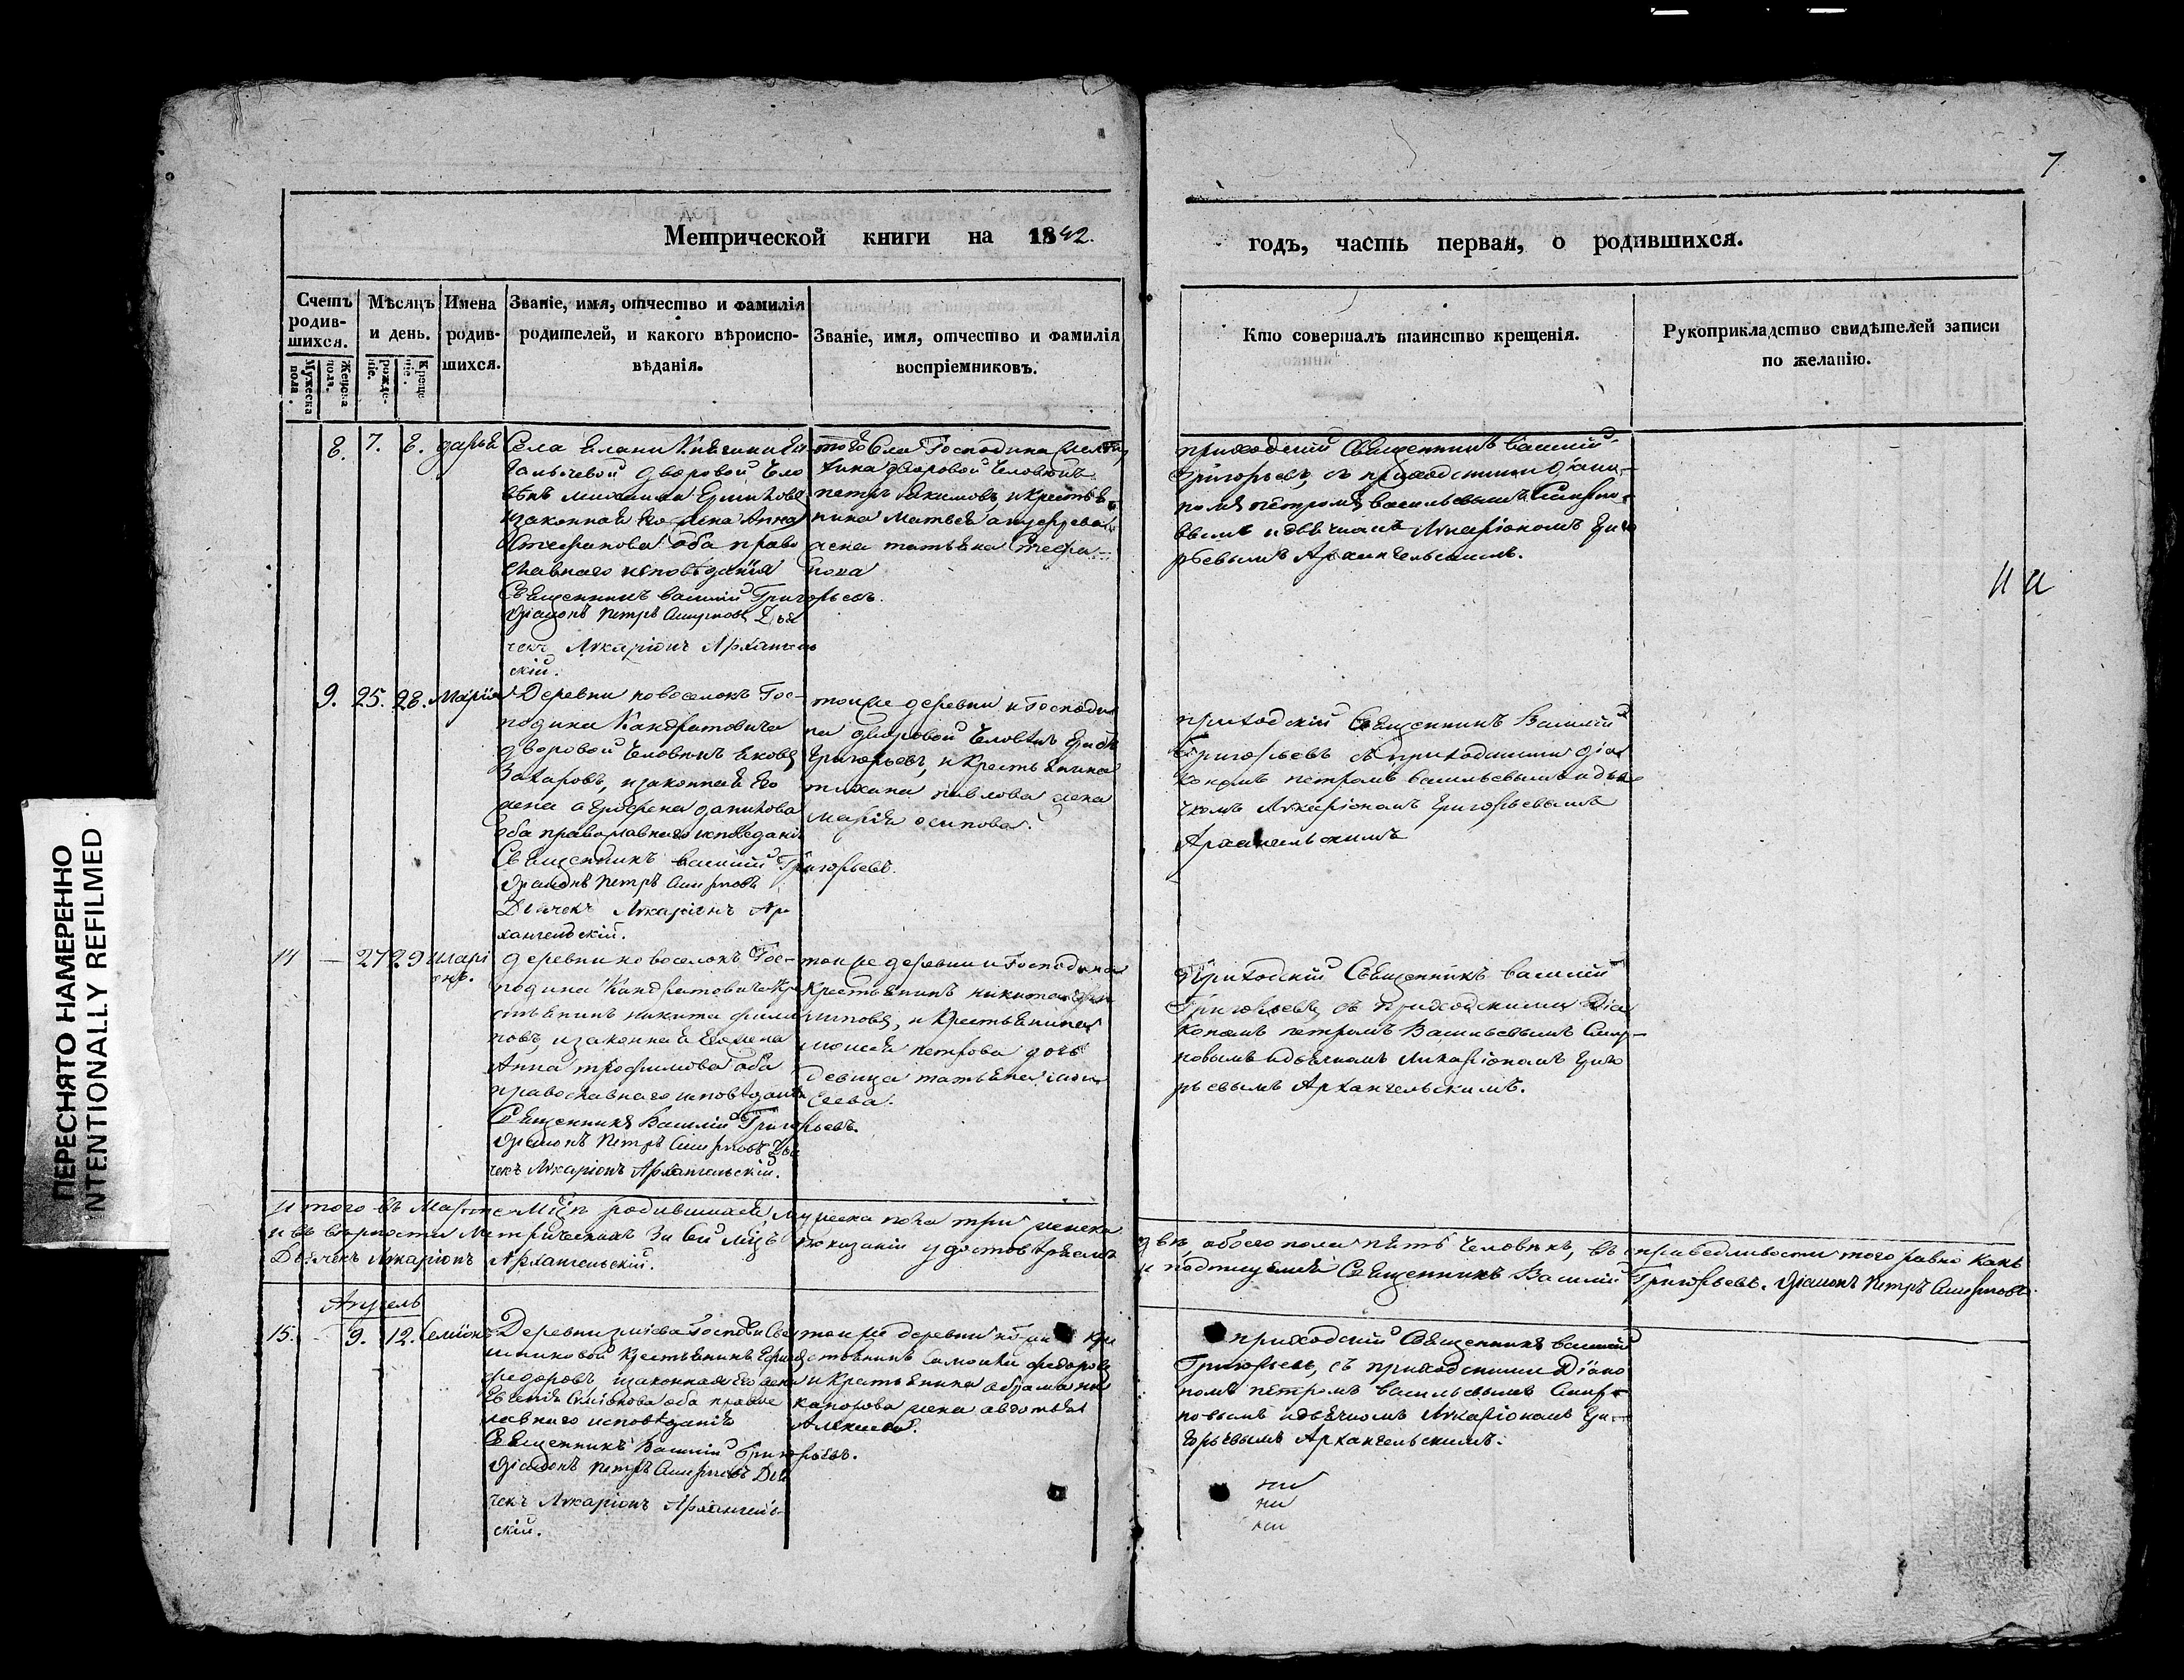 7
Метрической книги на 1842.
годъ, часть первая, о родившихся.
Счетъ родившихся.
Мужеска пола.
Женска пола.
Мѣсяцъ и день.
рожденіе.
Крещеніе.
Имена родившихся.
Званіе, имя, отчество и фамилія
родителей, и какого вѣроиспо-
вѣданія.
Званіе, имя, отчество и фамилія
воспріемниковъ.
Кто совершалъ таинство крещенія.
Рукоприкладство свидѣтелей записи
по желанію.
8. 7. 8. дарья
Села
дворовой чело
вѣкъ Ермиловъ
изаконная его жена Анна
Стефанова оба право
славнаго исповѣданія
Священникъ Василій Григорьевъ.
Діаконъ Петръ Смирновъ Дья
чекъ Иларіонъ Архангель
скій.
тогоже села Господина
дворовой человѣкъ
петръ Якимовъ, и крестья
нина Матвея
жена татьяна Стефа-
нова
приходскій Священникъ Василій
Григорьевъ, съ приходскими діако-
номъ петромъ васильевымъ Смирно-
вымъ идьячкомъ Иларіономъ Григо
рьевымъ Архангельскимъ.
9. 25. 28. Марія
Деревни новоселокъ Гос-
подина Кандратовича
дворовой человѣкъ Яковъ
Захаровъ, изаконная Его
жена агрофена данилова
оба православнаго исповеданія
Священникъ василій Григорьевъ.
Діаконъ Петръ Смирновъ
Дьячекъ Иларіонъ Ар-
хангельскій.
тойже деревни и Господи
на дворовой человѣкъ
Григорьевъ, и крестьянина
павлова жена
марія осипова.
приходскій Священникъ Василій
Григорьевъ съ приходскими діа
кономъ петромъ васильевымъ идья
чкомъ Иларіономъ Григорьевымъ
Архангельскимъ
14 — 27 29 иларі
онъ.
деревни новоселокъ Гос-
подина Кандратовича кре
стьянинъ никита фили
повъ, изаконная Его жена
Анна трофимова оба
православнаго исповѣданія
Священникъ Василій Григорьевъ.
Діаконъ Петръ Смирновъ Дья
чекъ Иларіонъ Архангельскій.
тойже деревни и Господина
крестьянинъ никита
, и крестьянина
моисея петрова дочь
девица татьяна мои
сеева.
Приходскій Священникъ василій
Григорьевъ, съ приходскими Діа
кономъ петромъ Васильевымъ Смир-
новымъ идьячкомъ Иларіономъ Григо
рьевымъ Архангельскимъ.
Итого въ Марте мцѣ родившихся мужеска пола три женска двѣ, обоего пола пять человѣкъ, въ справедливости того равно какъ
и въ верности Метрическихъ за сей мцъ показаній удостовѣряемъ и подписуемся Священникъ Василій Григорьевъ. Діаконъ Петръ Смирновъ
Дьячекъ Иларіонъ Архангельскій.
Апрель
15. - 9. 12. Семіонъ
Деревни зміева Госпожи
крестьянинъ
федоровъ изаконная Его жена
Евгенія Семіонова оба право
славнаго исповѣданія
Священникъ Василій Григорьевъ.
Діаконъ Петръ Смирновъ Дья
чекъ Иларіонъ Архангель-
скій.
тойже деревни кре
стьянинъ федоровъ
и крестьянина абрама ни
канорова жена авдотья
Алексеева.
приходскій Священникъ василій
Григорьевъ, съ приходскими Діако
номъ петромъ васильевымъ Смир-
новымъ идьячкомъ Иларіономъ Гри-
горьевымъ Архангельскимъ.
ПЕРЕСНЯТО НАМЕРЕННО
INTENTIONALLY REFILMED